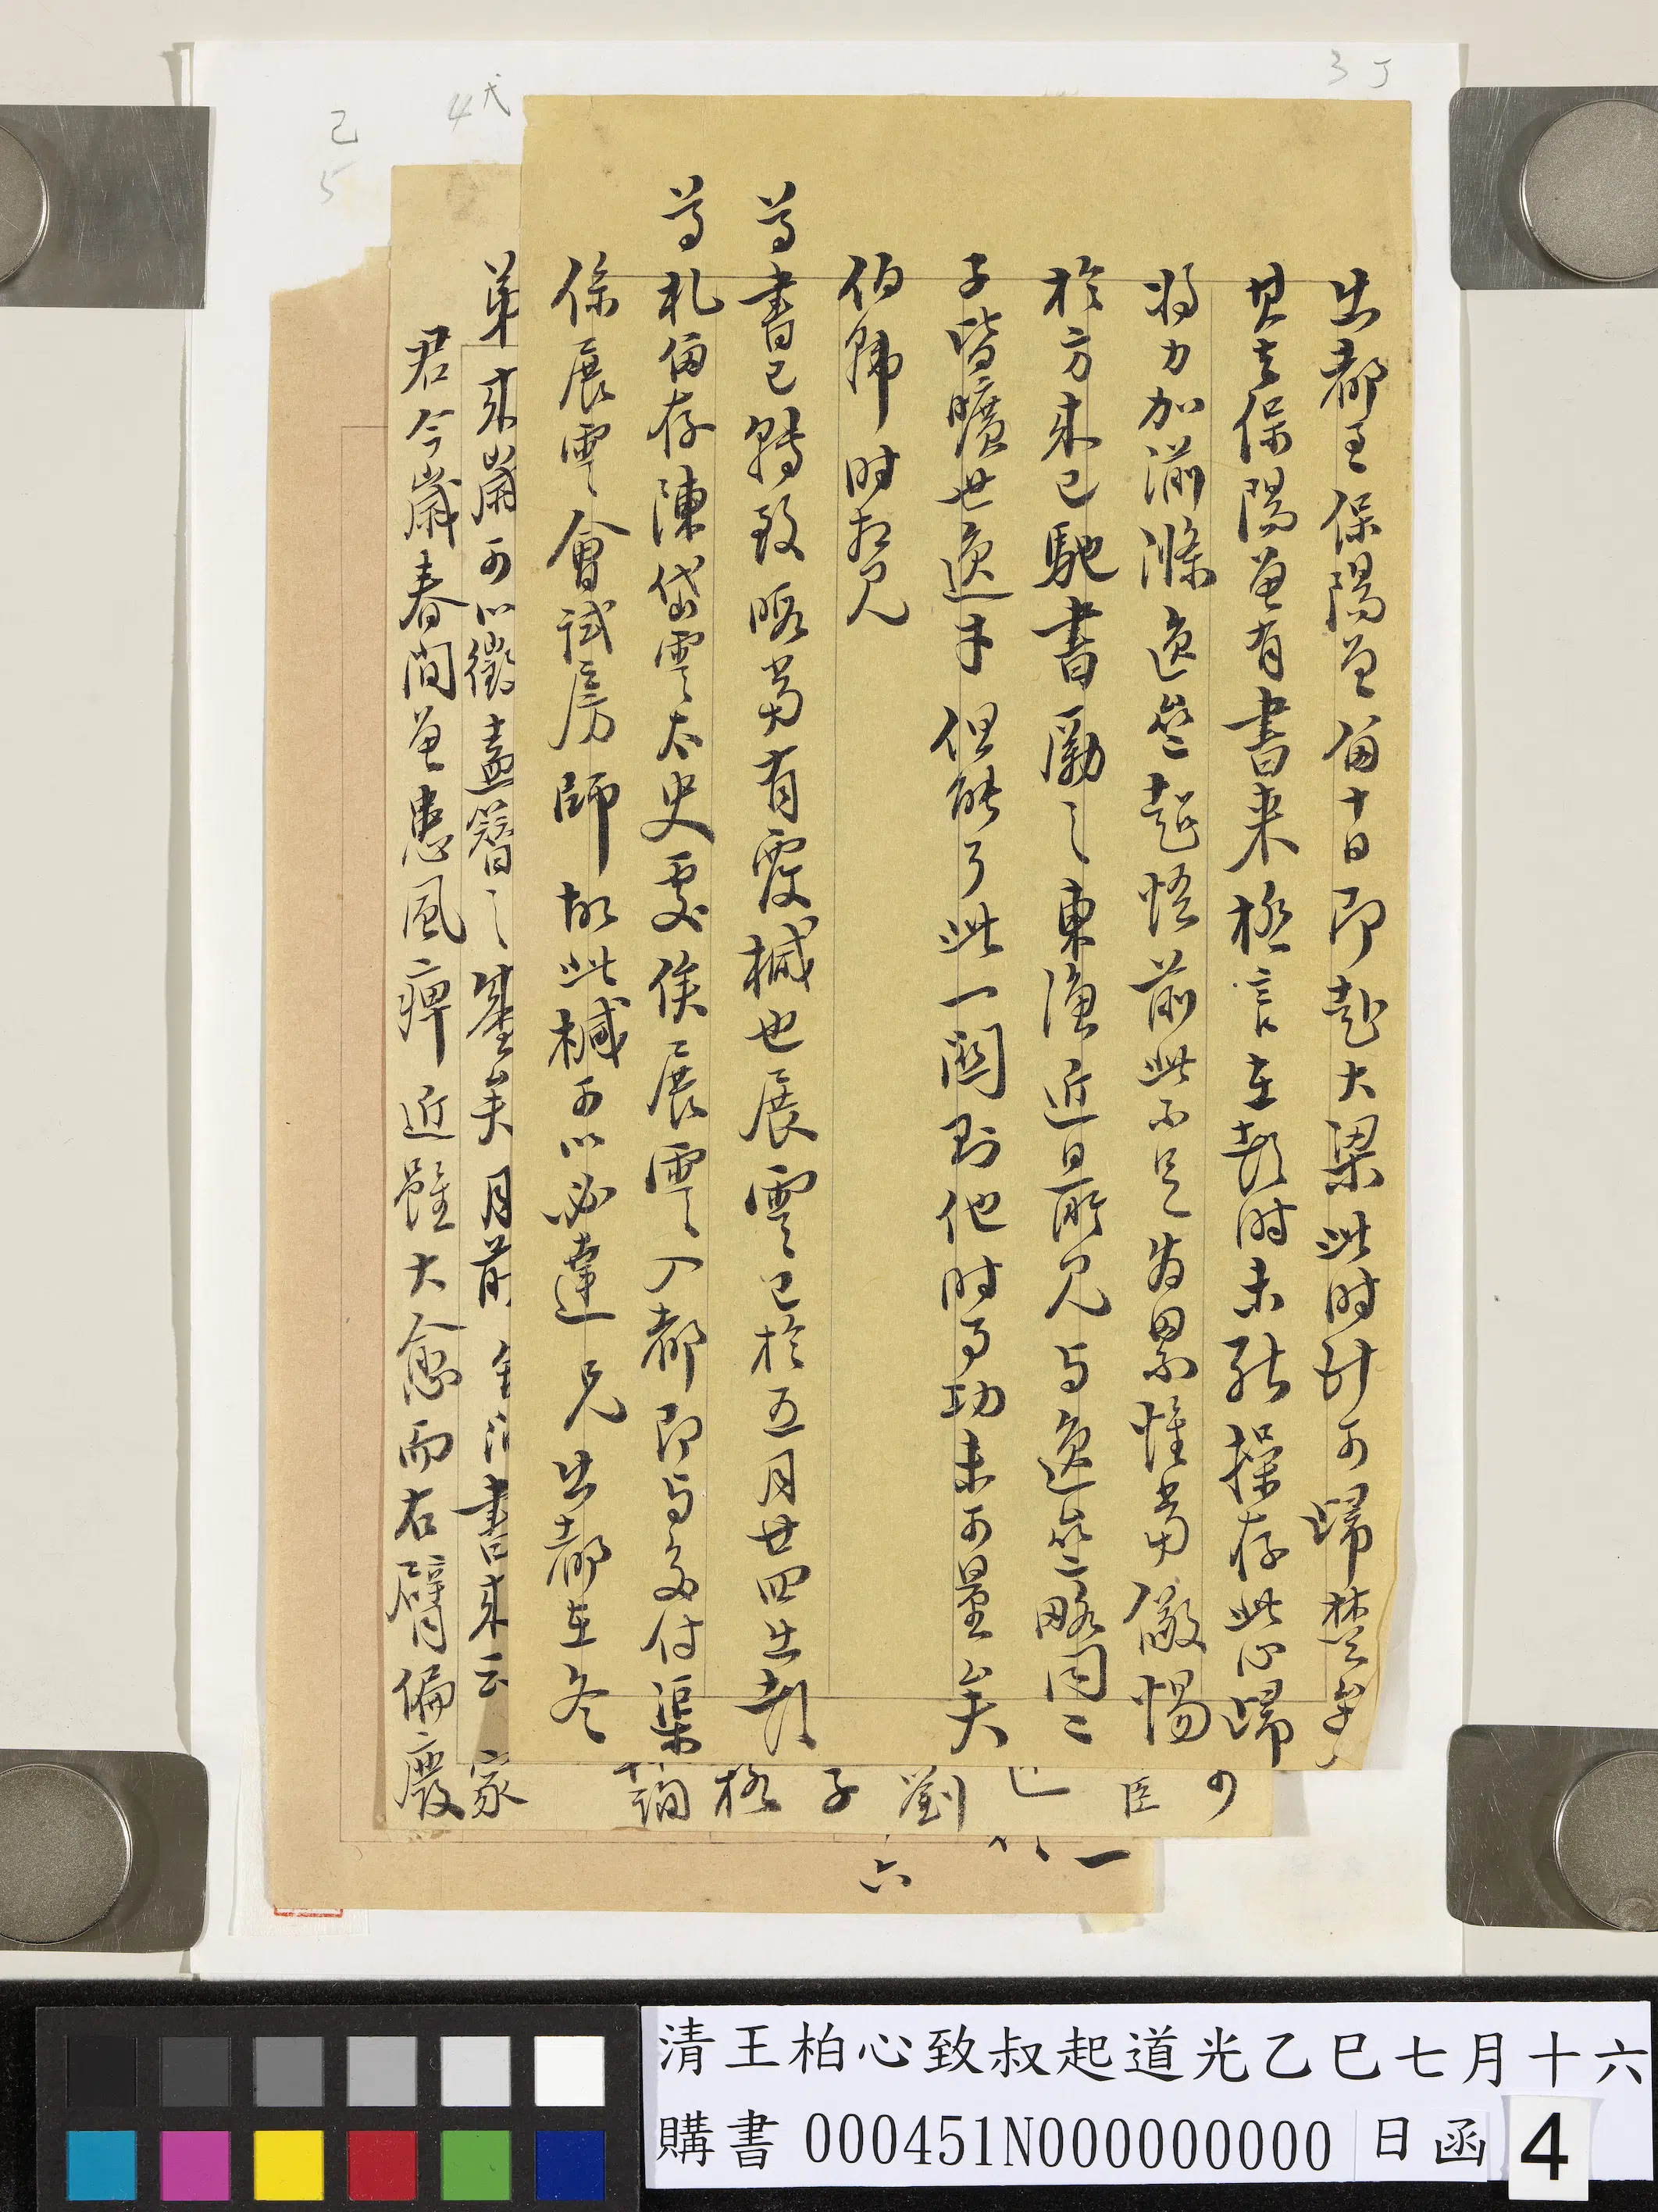 3 丁
4 戊
己
5
出都至保陽兰留十日即赴大梁此時計可歸楚
其去保陽兰有書來極言在都時未能操存此心歸
將力加湔滌逸然超悟前此不足為累惟當儆惕
於方來已馳書勵之東漁近日所見與逸然略同二
子皆曠世逸才但能了此一關則他時事功未可量矣
伯歸時相見
尊書已轉致眂當有覆械也展雲已於五月廿四出都
尊札留存陳岱雲太史處俟展雲入都即与面付渠
係展雲會試房師故此械可以必達兄出都在冬
弟來歲可以徵盍簪之 矣月前 書來云 家
君今歲春間兰患風痺近雖大愈而右臂偏廢
可
臣
劉
子
格
一
六
清王柏心致叔起道光乙巳七月十六
購書 000451N000000000 日函 4